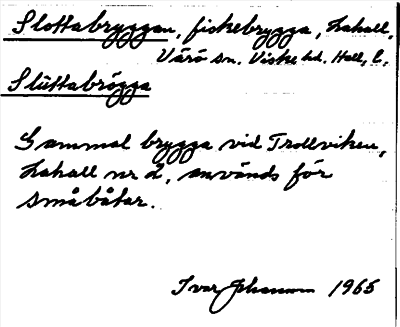 Slottabryggan, fiskebrygga, Lahall,
Värö sn. Viske hd. Hall. l.
Slúttabrögga
Gammal brygga vid Trollviken,
Lahall nr 2, används för
småbåtar.
Ivar Johansson 1965